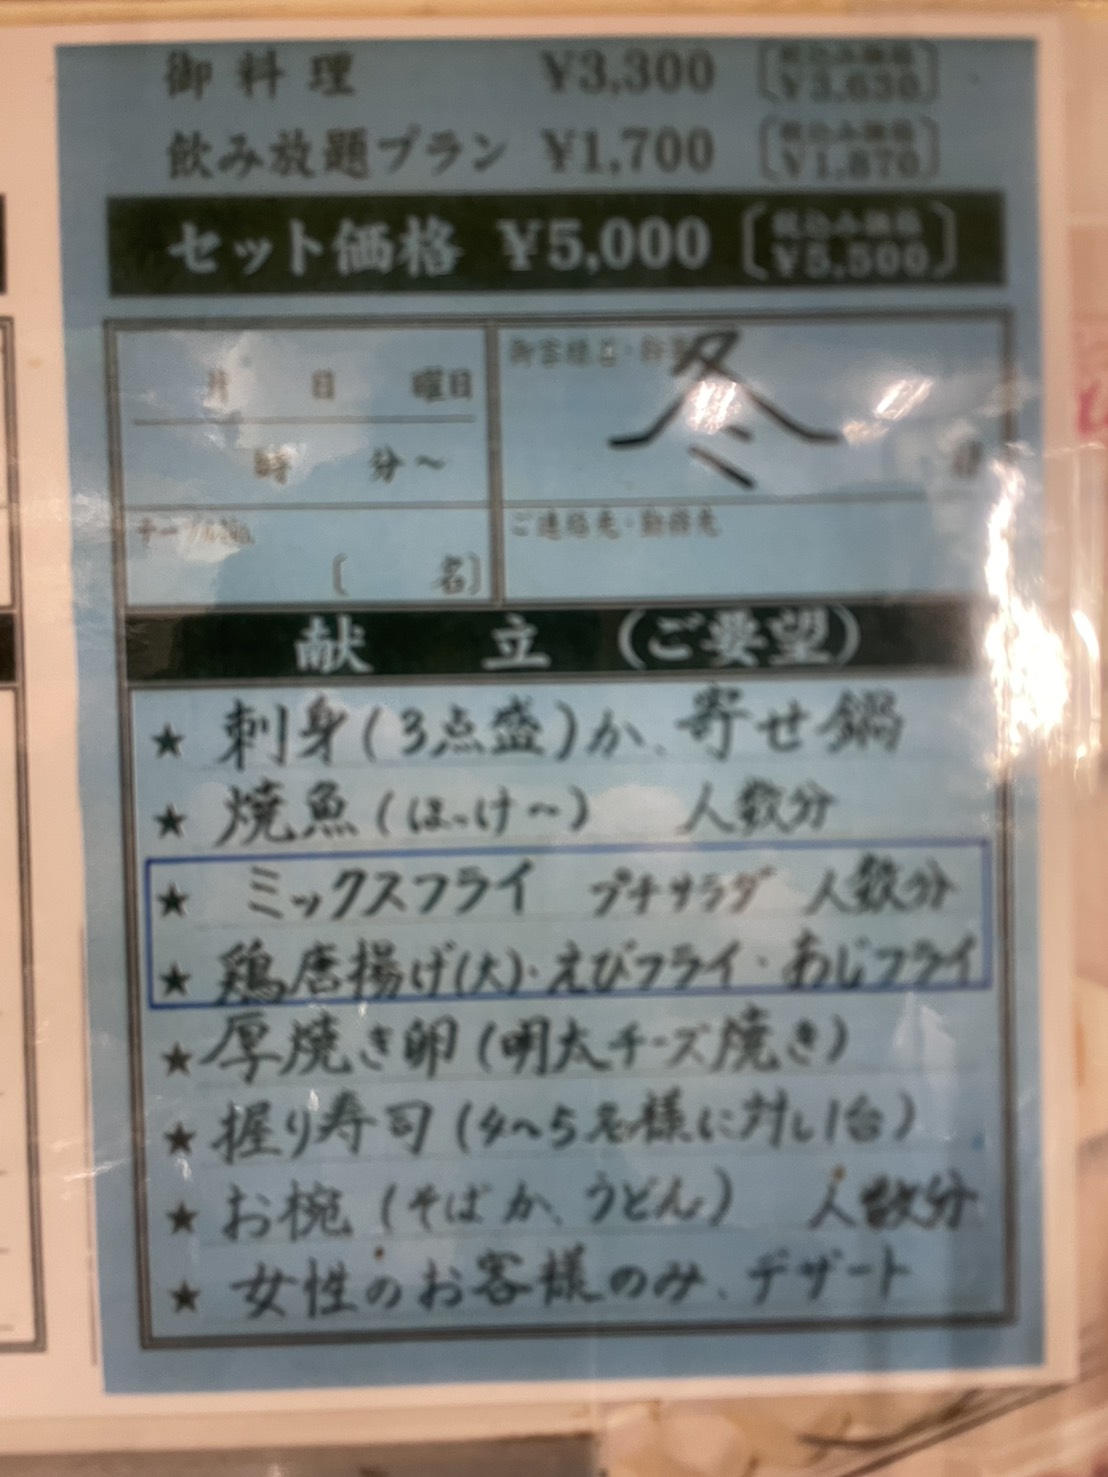 御料理 ¥3,300 〔税込み価格 ¥3,630〕
飲み放題プラン ¥1,700 〔税込み価格 ¥1,870〕
セット価格 ¥5,000 〔税込み価格 ¥5,500〕
月 日 曜日
冬
時 分～
テーブルNo.
ご連絡先・勤務先
〔 名〕
献 立 (ご要望)
★ 刺身(3点盛)か、寄せ鍋
★ 焼魚(ほっけ～) 人数分
★ ミックスフライ プチサラダ 人数分
★ 鶏唐揚げ(大)・えびフライ・あじフライ
★ 厚焼き卵(明太チーズ焼き)
★ 握り寿司(4～5名様に対し1台)
★ お椀(そばか、うどん) 人数分
★ 女性のお客様のみ、デザート